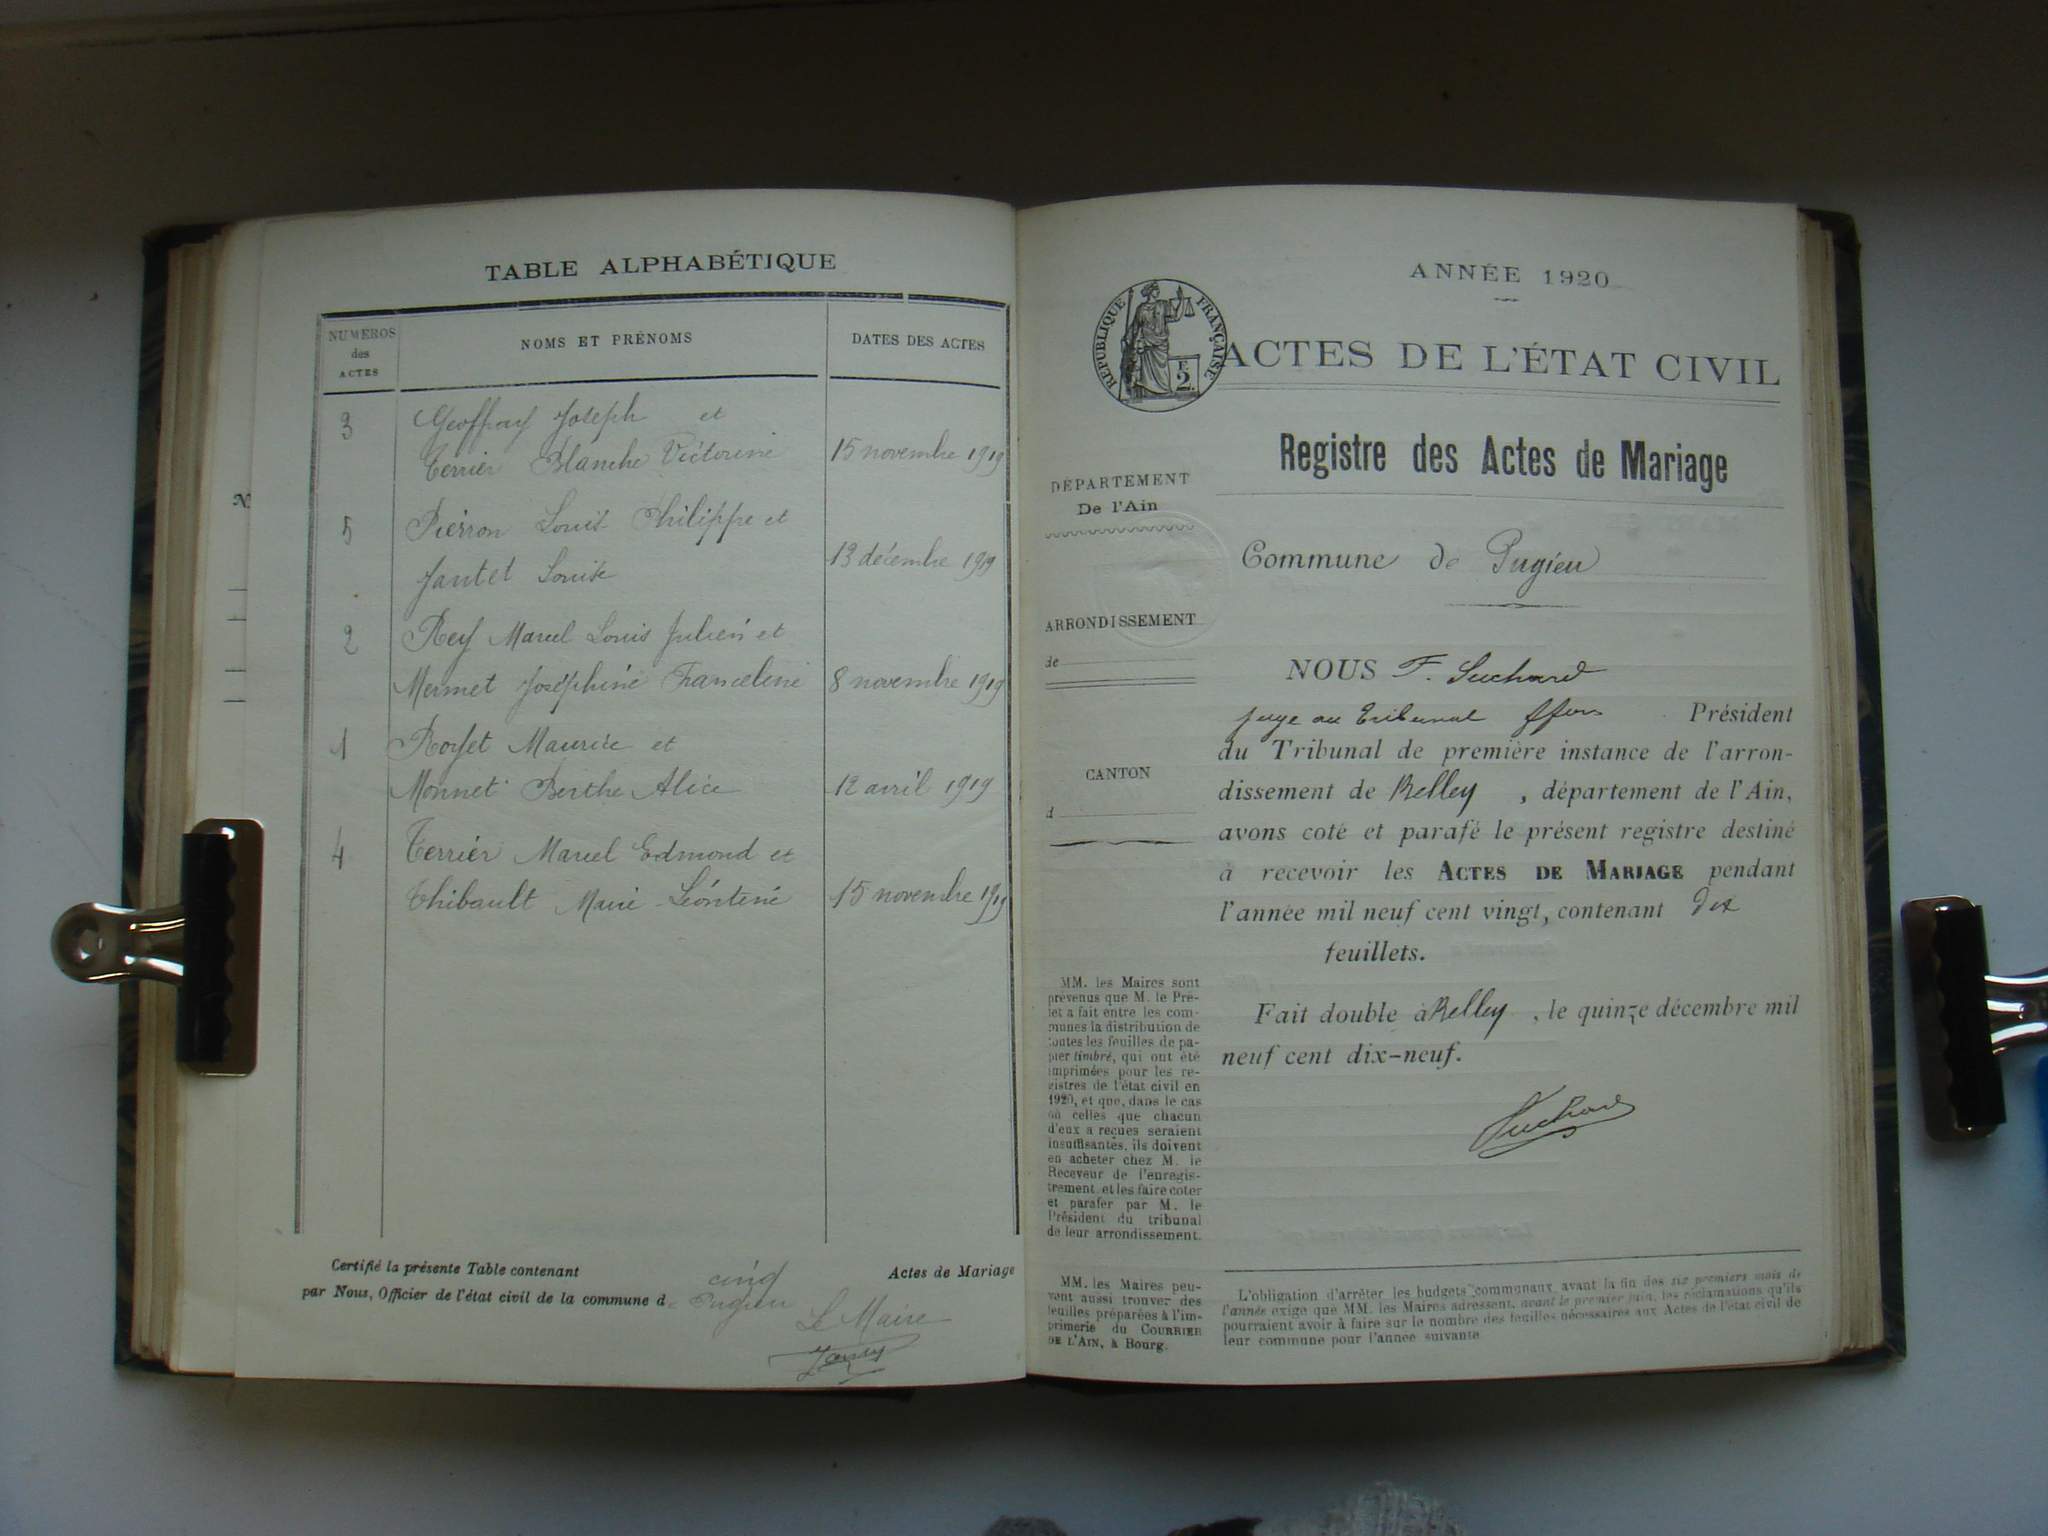 TABLE ALPHABÉTIQUE
NUMÉROS
des
ACTES
NOMS ET PRÉNOMS
DATES DES ACTES
3 Geoffray Joseph et
Terrier Blanche Victorine 15 novembre 1919
5 Pierron Louis Philippe et
Jantet Louise 13 décembre 1919
2 Rey Marcel Louis Julien et
Mermet Joséphine Franceline 8 novembre 1919
1 Royet Maurice et
Monnet Berthe Alice 12 avril 1919
4 Terrier Marcel Edmond et
Thibault Marie Léontine 15 novembre 1919
Certifié la présente Table contenant cinq Actes de Mariage
par Nous, Officier de l'état civil de la commune de Pugieu
Le Maire
ANNÉE 1920
RÉPUBLIQUE FRANÇAISE
F.
2.
ACTES DE L'ÉTAT CIVIL
Registre des Actes de Mariage
DÉPARTEMENT
De l'Ain
Commune de Pugieu
ARRONDISSEMENT
de
CANTON
d
NOUS F. Suchard
juge au Tribunal ffons Président
du Tribunal de première instance de l'arron-
dissement de Belley, département de l'Ain,
avons coté et parafé le présent registre destiné
à recevoir les ACTES DE MARIAGE pendant
l'année mil neuf cent vingt, contenant dix
feuillets.
Fait double à Belley, le quinze décembre mil
neuf cent dix-neuf.
Suchard
MM. les Maires sont
prévenus que M. le Pré-
fet a fait entre les com-
munes la distribution de
toutes les feuilles de pa-
pier timbré, qui ont été
imprimées pour les re-
gistres de l'état civil en
1920, et que, dans le cas
où celles que chacun
d'eux a reçues seraient
insuffisantes, ils doivent
en acheter chez M. le
Receveur de l'enregis-
trement et les faire coter
et parafer par M. le
Président du tribunal
de leur arrondissement.
MM. les Maires peu-
vent aussi trouver des
feuilles préparées à l'im-
primerie du COURRIER
DE L'AIN, à Bourg.
L'obligation d'arrêter les budgets communaux avant la fin des six premiers mois de
l'année exige que MM. les Maires adressent, avant le premier juin, les réclamations qu'ils
pourraient avoir à faire sur le nombre des feuilles nécessaires aux Actes de l'état civil de
leur commune pour l'année suivante